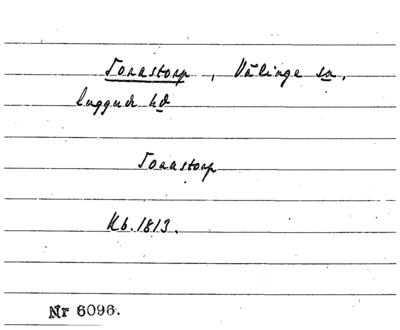 Tonastorp, Välinge sn,
Luggude hd
Tonastorp
Kb. 1813.
Nr 6096.